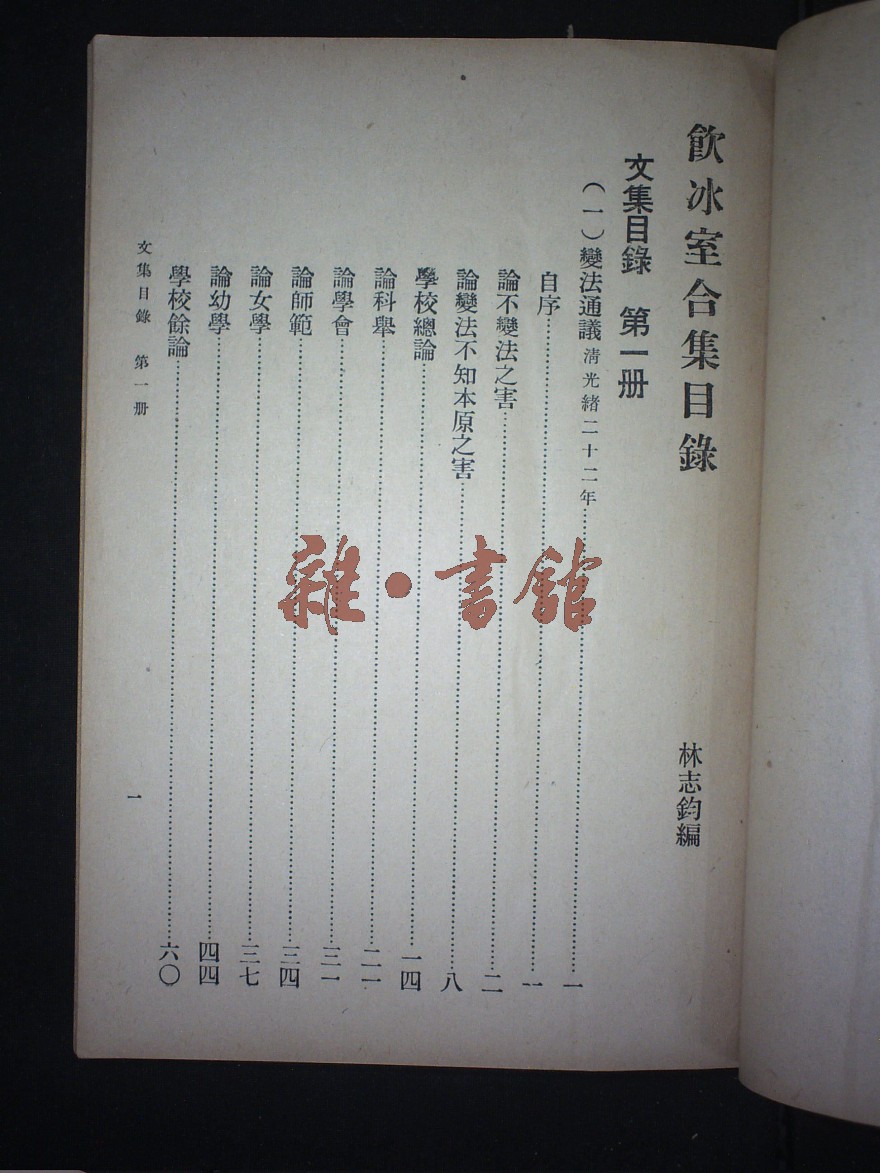 飲冰室合集目錄
林志鈞編
文集目錄 第一册
(一)變法通議 清光緒二十二年……一
自序……一
論不變法之害……二
論變法不知本原之害……八
學校總論……一四
論科舉……二一
論學會……三一
論師範……三四
論女學……三七
論幼學……四四
學校餘論……六〇
文集目錄 第一册
一
雜·書館